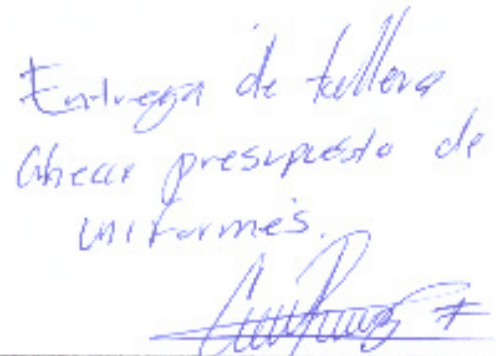 Entrega de tallera
Checar presupuesto de
uniformes.